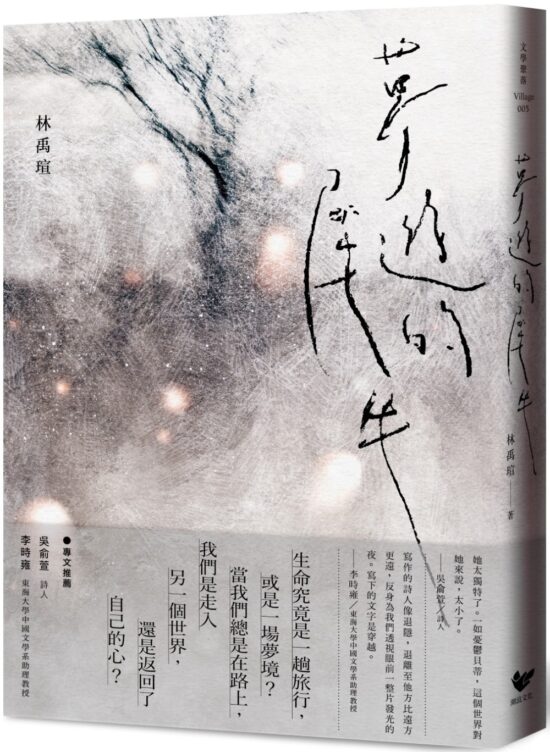 夢遊的
犀牛
林禹瑄
她太獨特了。一如憂鬱貝蒂，這個世界對
她來說，太小了。
——吳俞萱／詩人
寫作的詩人像退隱，退離至他方比遠方
更遠，反身為我們透視眼前一整片發光的
夜。寫下的文字是穿越。
——李時雍／東海大學中國文學系助理教授
生命究竟是一趟旅行，
或是一場夢境？
當我們總是在路上，
我們是走入
另一個世界，
還是返回了
自己的心？
●專文推薦
吳俞萱 詩人
李時雍 東海大學中國文學系助理教授
文學聚落
Village
005
夢遊的犀牛
林禹瑄——著